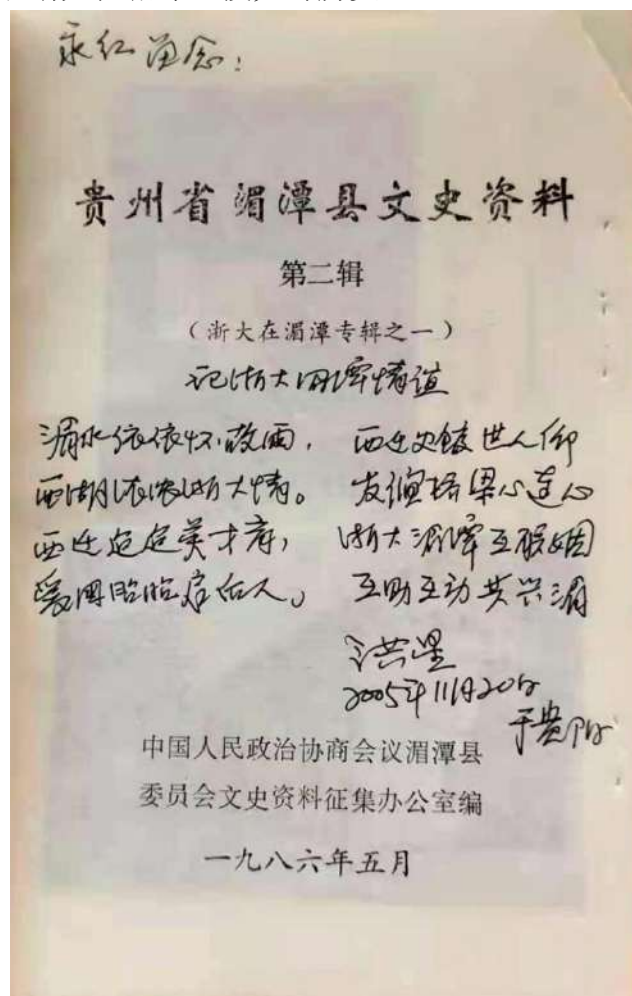 永红留念:
贵州省湄潭县文史资料
第二辑
(浙大在湄潭专辑之一)
记浙大湄潭情谊
湄水依依怀故雨,
西湖浓浓浙大情。
西迁迢迢英才育,
爱国昭昭启后人。
西迁史馆世人仰
友谊桥梁心连心
浙大湄潭互联姻
互助互动共兴湄
洪星
2005年11月20日
于贵阳
中国人民政治协商会议湄潭县
委员会文史资料征集办公室编
一九八六年五月